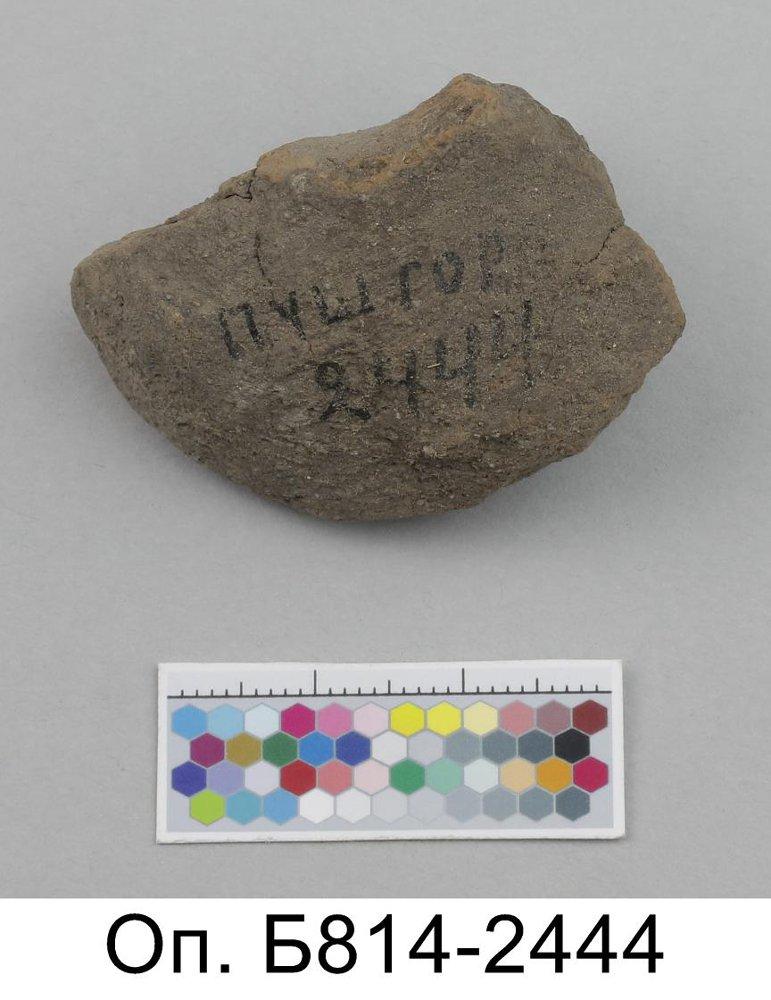 ПУШГОР
2444
Оп. Б814-2444